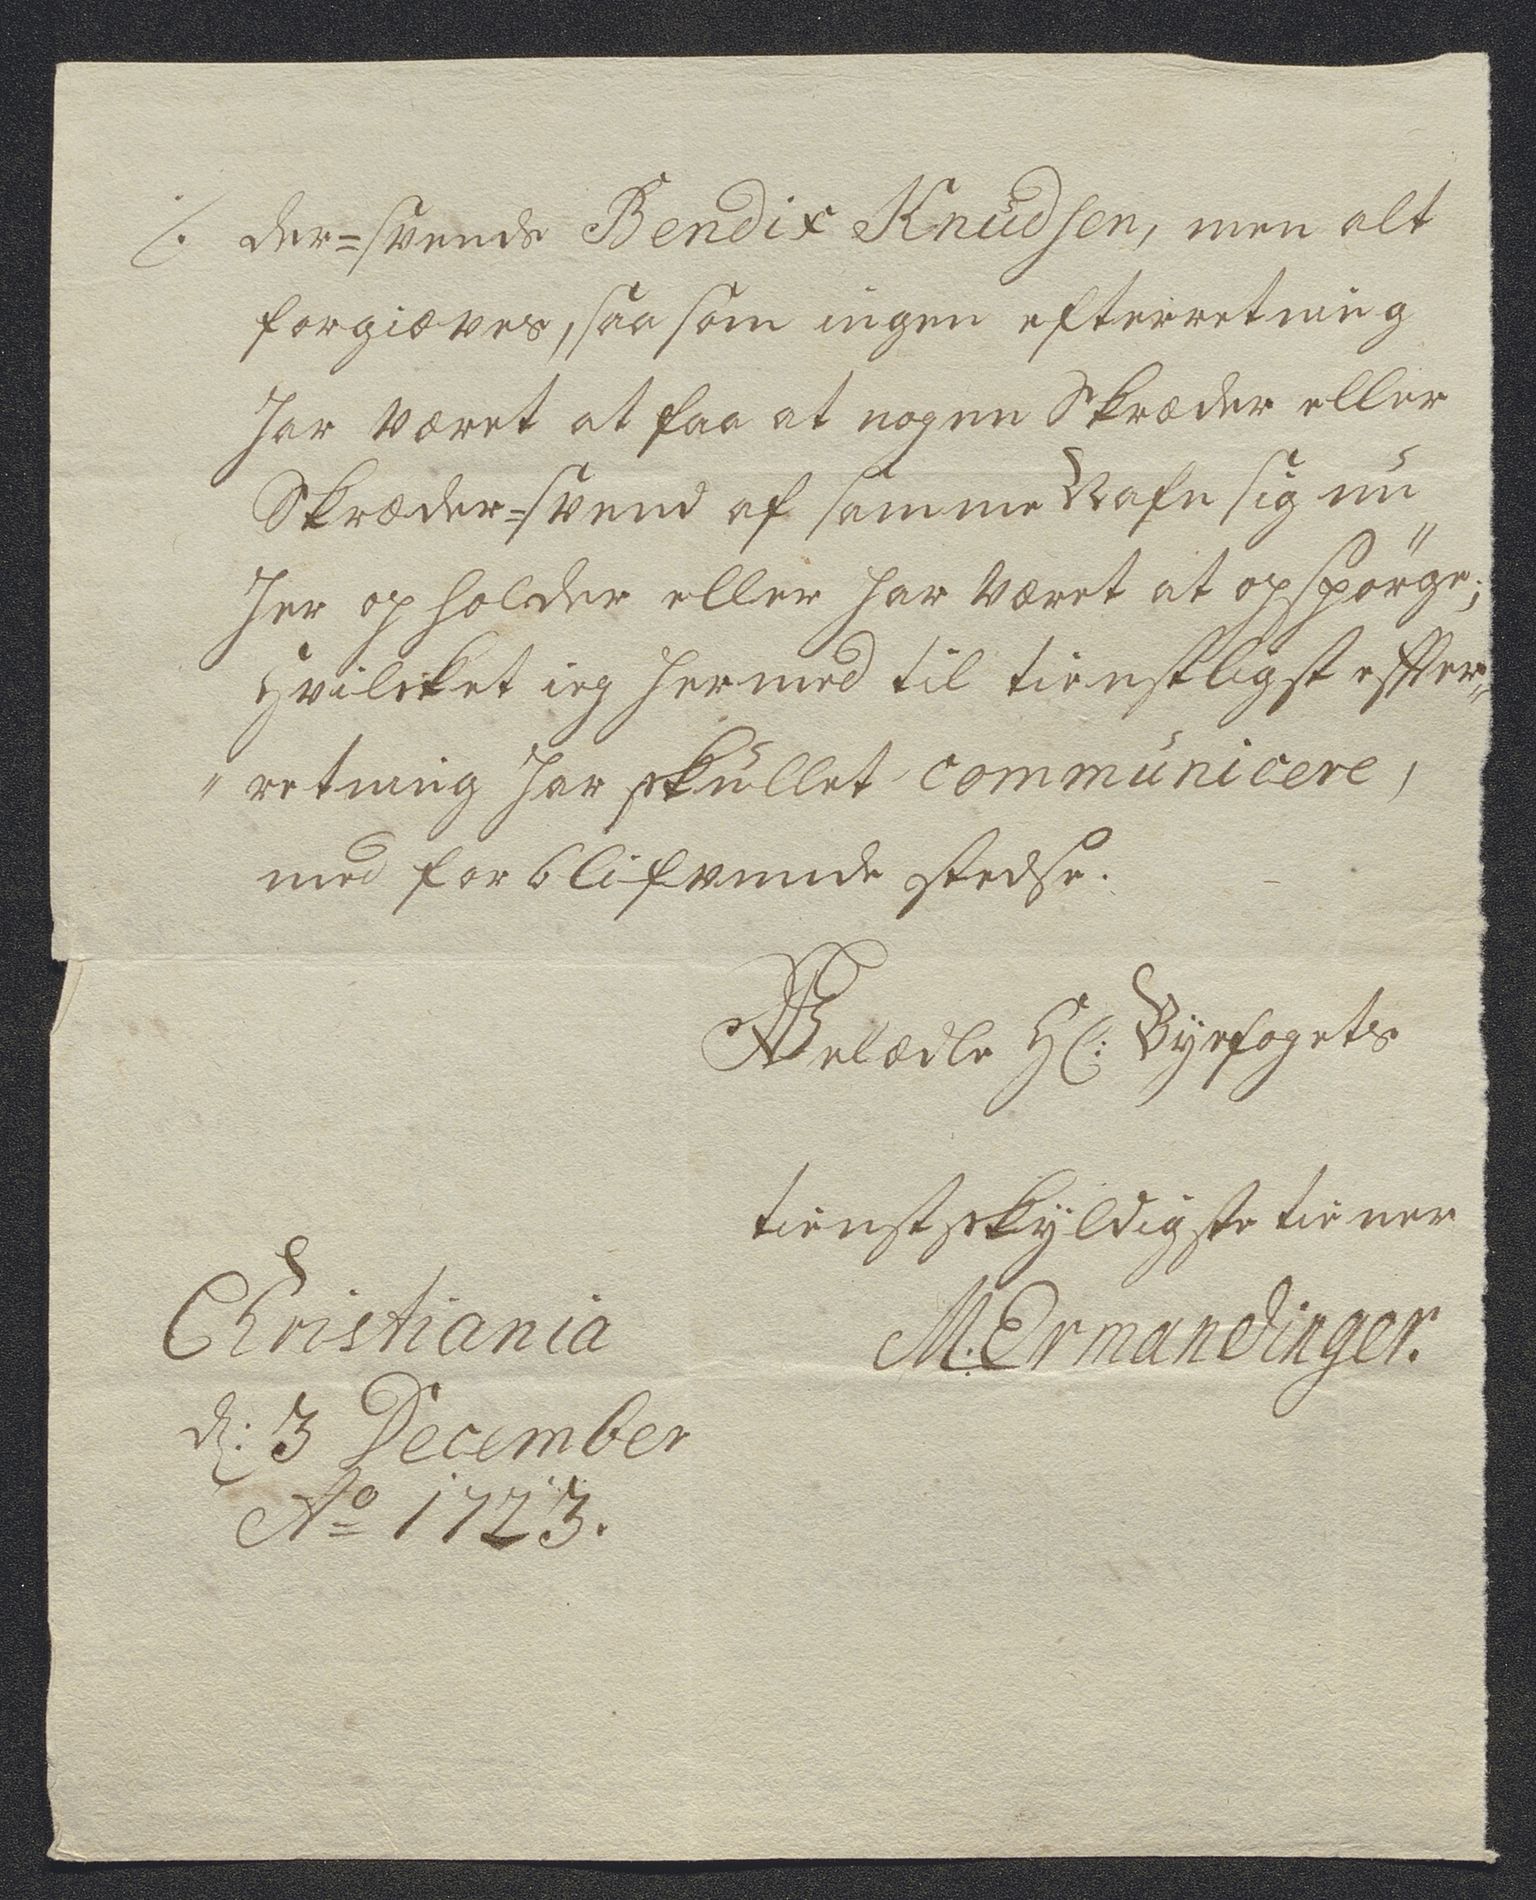 /. der=svends Bendix Knudsen, men alt
forgiæves, saa som ingen efterretning
har været at faa at nogen Skræder eller
Skræder=svend af samme Nafn sig nu
her opholder eller har været at opspörge;
Hvilcket ieg hermed til tienstligst effter=
"retning har skullet communicere,
med forblifvende stedse.
Velædle Hr: Byefogets
tienstskyldigste tiener
M: Ermandinger.
Christiania
d: 3 December
Ao 1723.